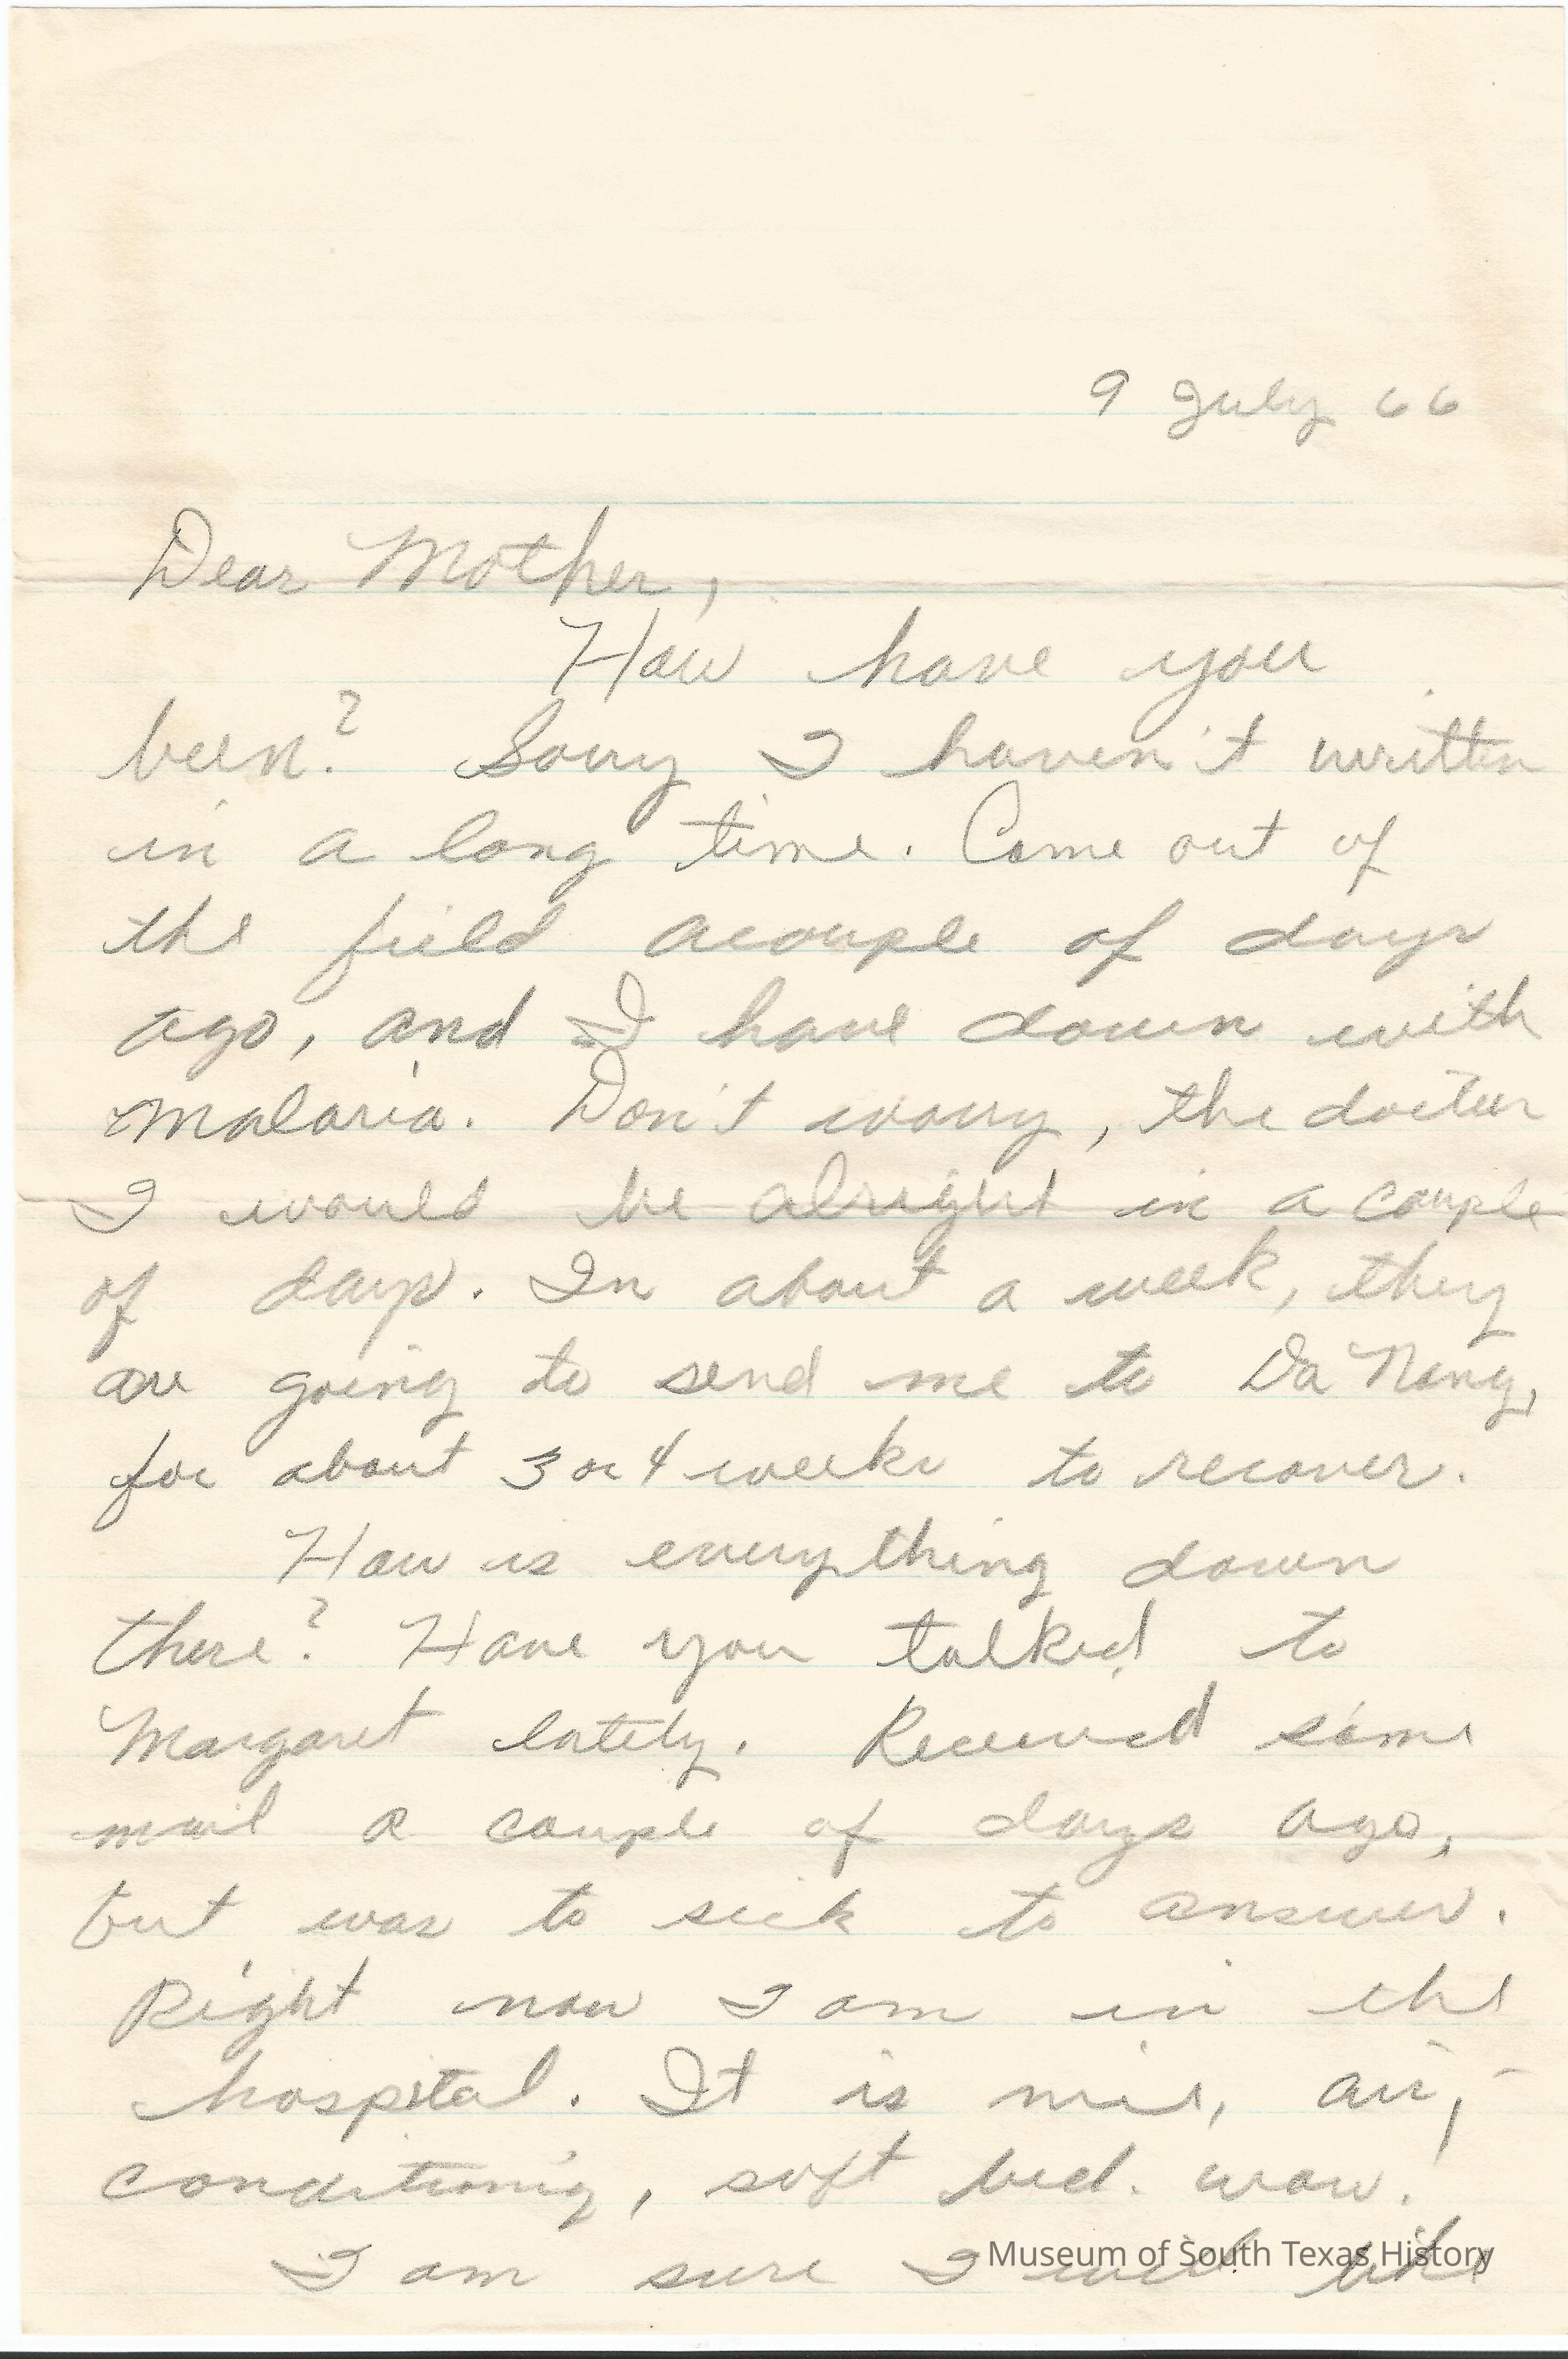 9 July 66
Dear Mother,
How have you
been? Sorry I haven't written
in a long time. Came out of
the field acouple of days
ago, and I have down with
malaria. Don't worry, the doctor
I would be alright in a couple
of days. In about a week, they
are going to send me to Da Nang,
for about 3 or 4 weeks to recover.
How is everything down
there? Have you talked to
Margaret lately. Received some
mail a couple of days ago,
but was to sick to answer.
Right now I am in the
hospital. It is nice, air-
conditioning, soft bed. wow!
I am sure I will like
Museum of South Texas History